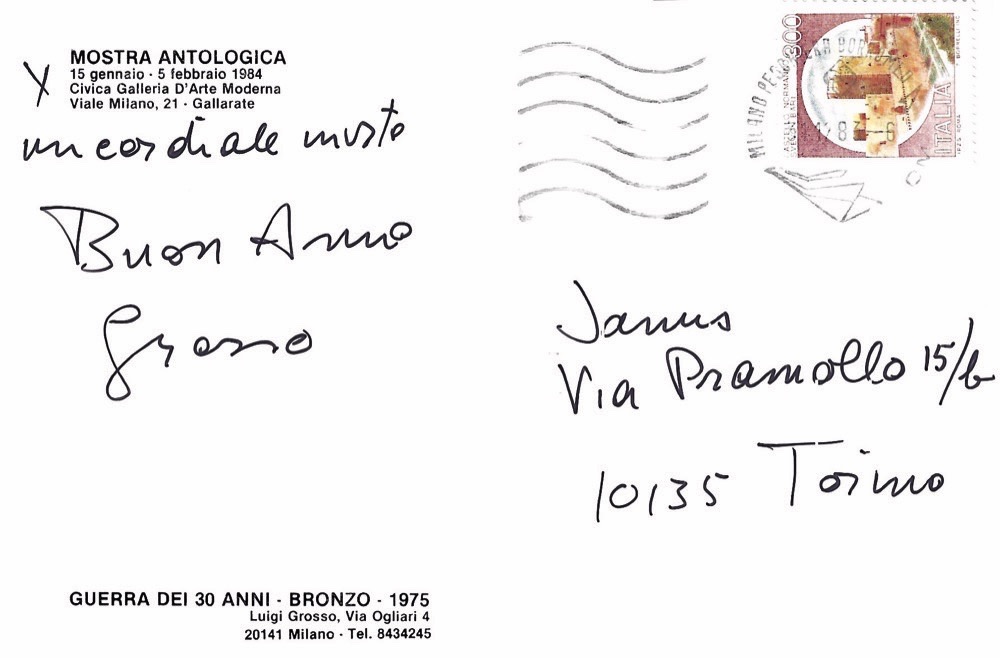 MOSTRA ANTOLOGICA
15 gennaio · 5 febbraio 1984
Civica Galleria D'Arte Moderna
Viale Milano, 21 · Gallarate
un cordiale invito
Buon Anno
Grosso
GUERRA DEI 30 ANNI · BRONZO · 1975
Luigi Grosso, Via Ogliari 4
20141 Milano · Tel. 8434245
300
ITALIA
MILANO
Janus
Via Pramollo 15/b
10135 Torino